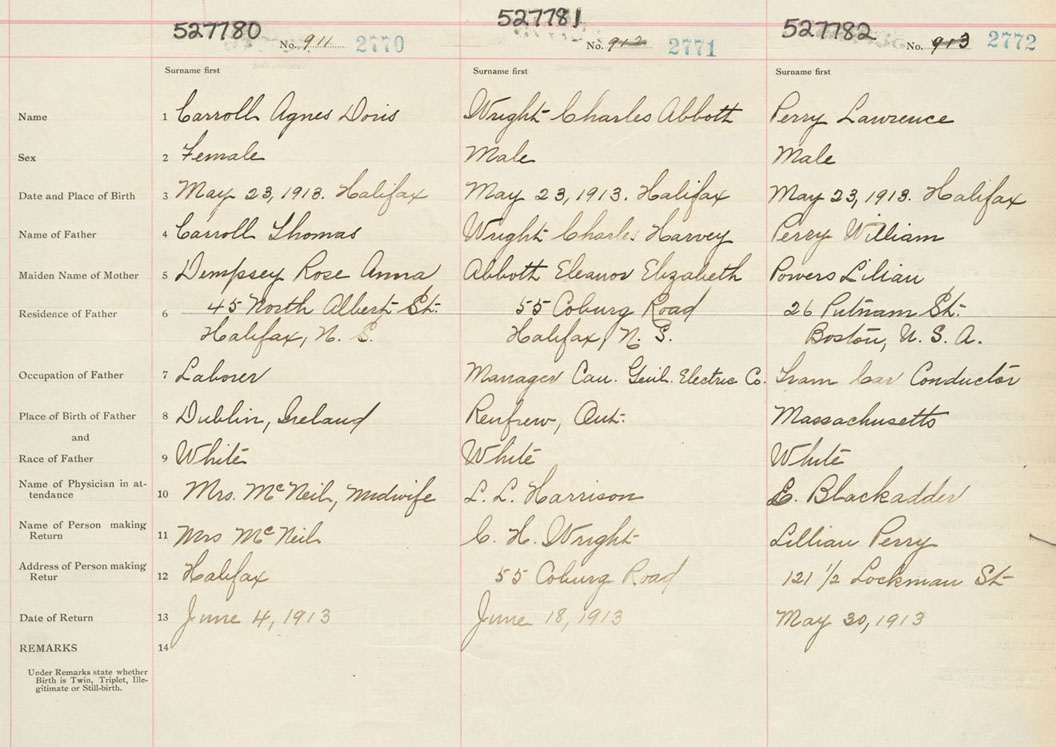 527780 527781 527782
No. 911 2770 No. 912 2771 No. 913 2772
Surname first Surname first Surname first
Name 1 Carroll Agnes Doris Wright Charles Abbott Perry Lawrence
Sex 2 Female Male Male
Date and Place of Birth 3 May 23, 1913. Halifax May 23, 1913. Halifax May 23, 1913. Halifax
Name of Father 4 Carroll Thomas Wright Charles Harvey Perry William
Maiden Name of Mother 5 Dempsey Rose Anna Abbott Eleanor Elizabeth Powers Lilian
Residence of Father 6 45 North Albert St. 55 Coburg Road 26 Putnam St.
Halifax, N. S. Halifax, N. S. Boston, U. S. A.
Occupation of Father 7 Laborer Manager Can. Genl. Electric Co. Tram Car Conductor
Place of Birth of Father 8 Dublin, Ireland Renfrew, Ont. Massachusetts
and
Race of Father 9 White White White
Name of Physician in at-
tendance 10 Mrs. McNeil, Midwife L. L. Harrison E. Blackadder
Name of Person making
Return 11 Mrs McNeil C. H. Wright Lillian Perry
Address of Person making
Retur 12 Halifax 55 Coburg Road 121 1/2 Lockman St
Date of Return 13 June 4, 1913 June 18, 1913 May 30, 1913
REMARKS 14
Under Remarks state whether
Birth is Twin, Triplet, Ille-
gitimate or Still-birth.